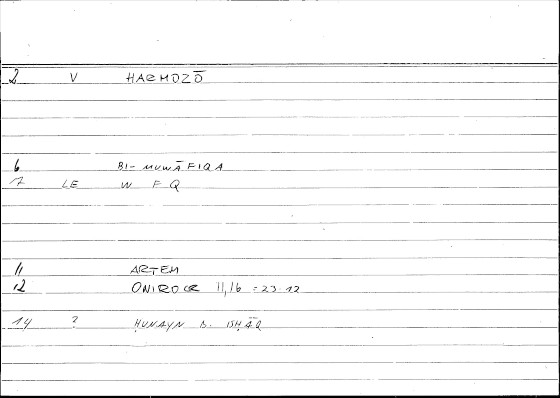 2 V HARMOZŌ
6 BI- MUWĀFIQA
7 LE W F Q
11 ARTEM
12 ONIROCR 11,16 = 23 12
14 ? ḤUNAYN B. ISḤĀQ